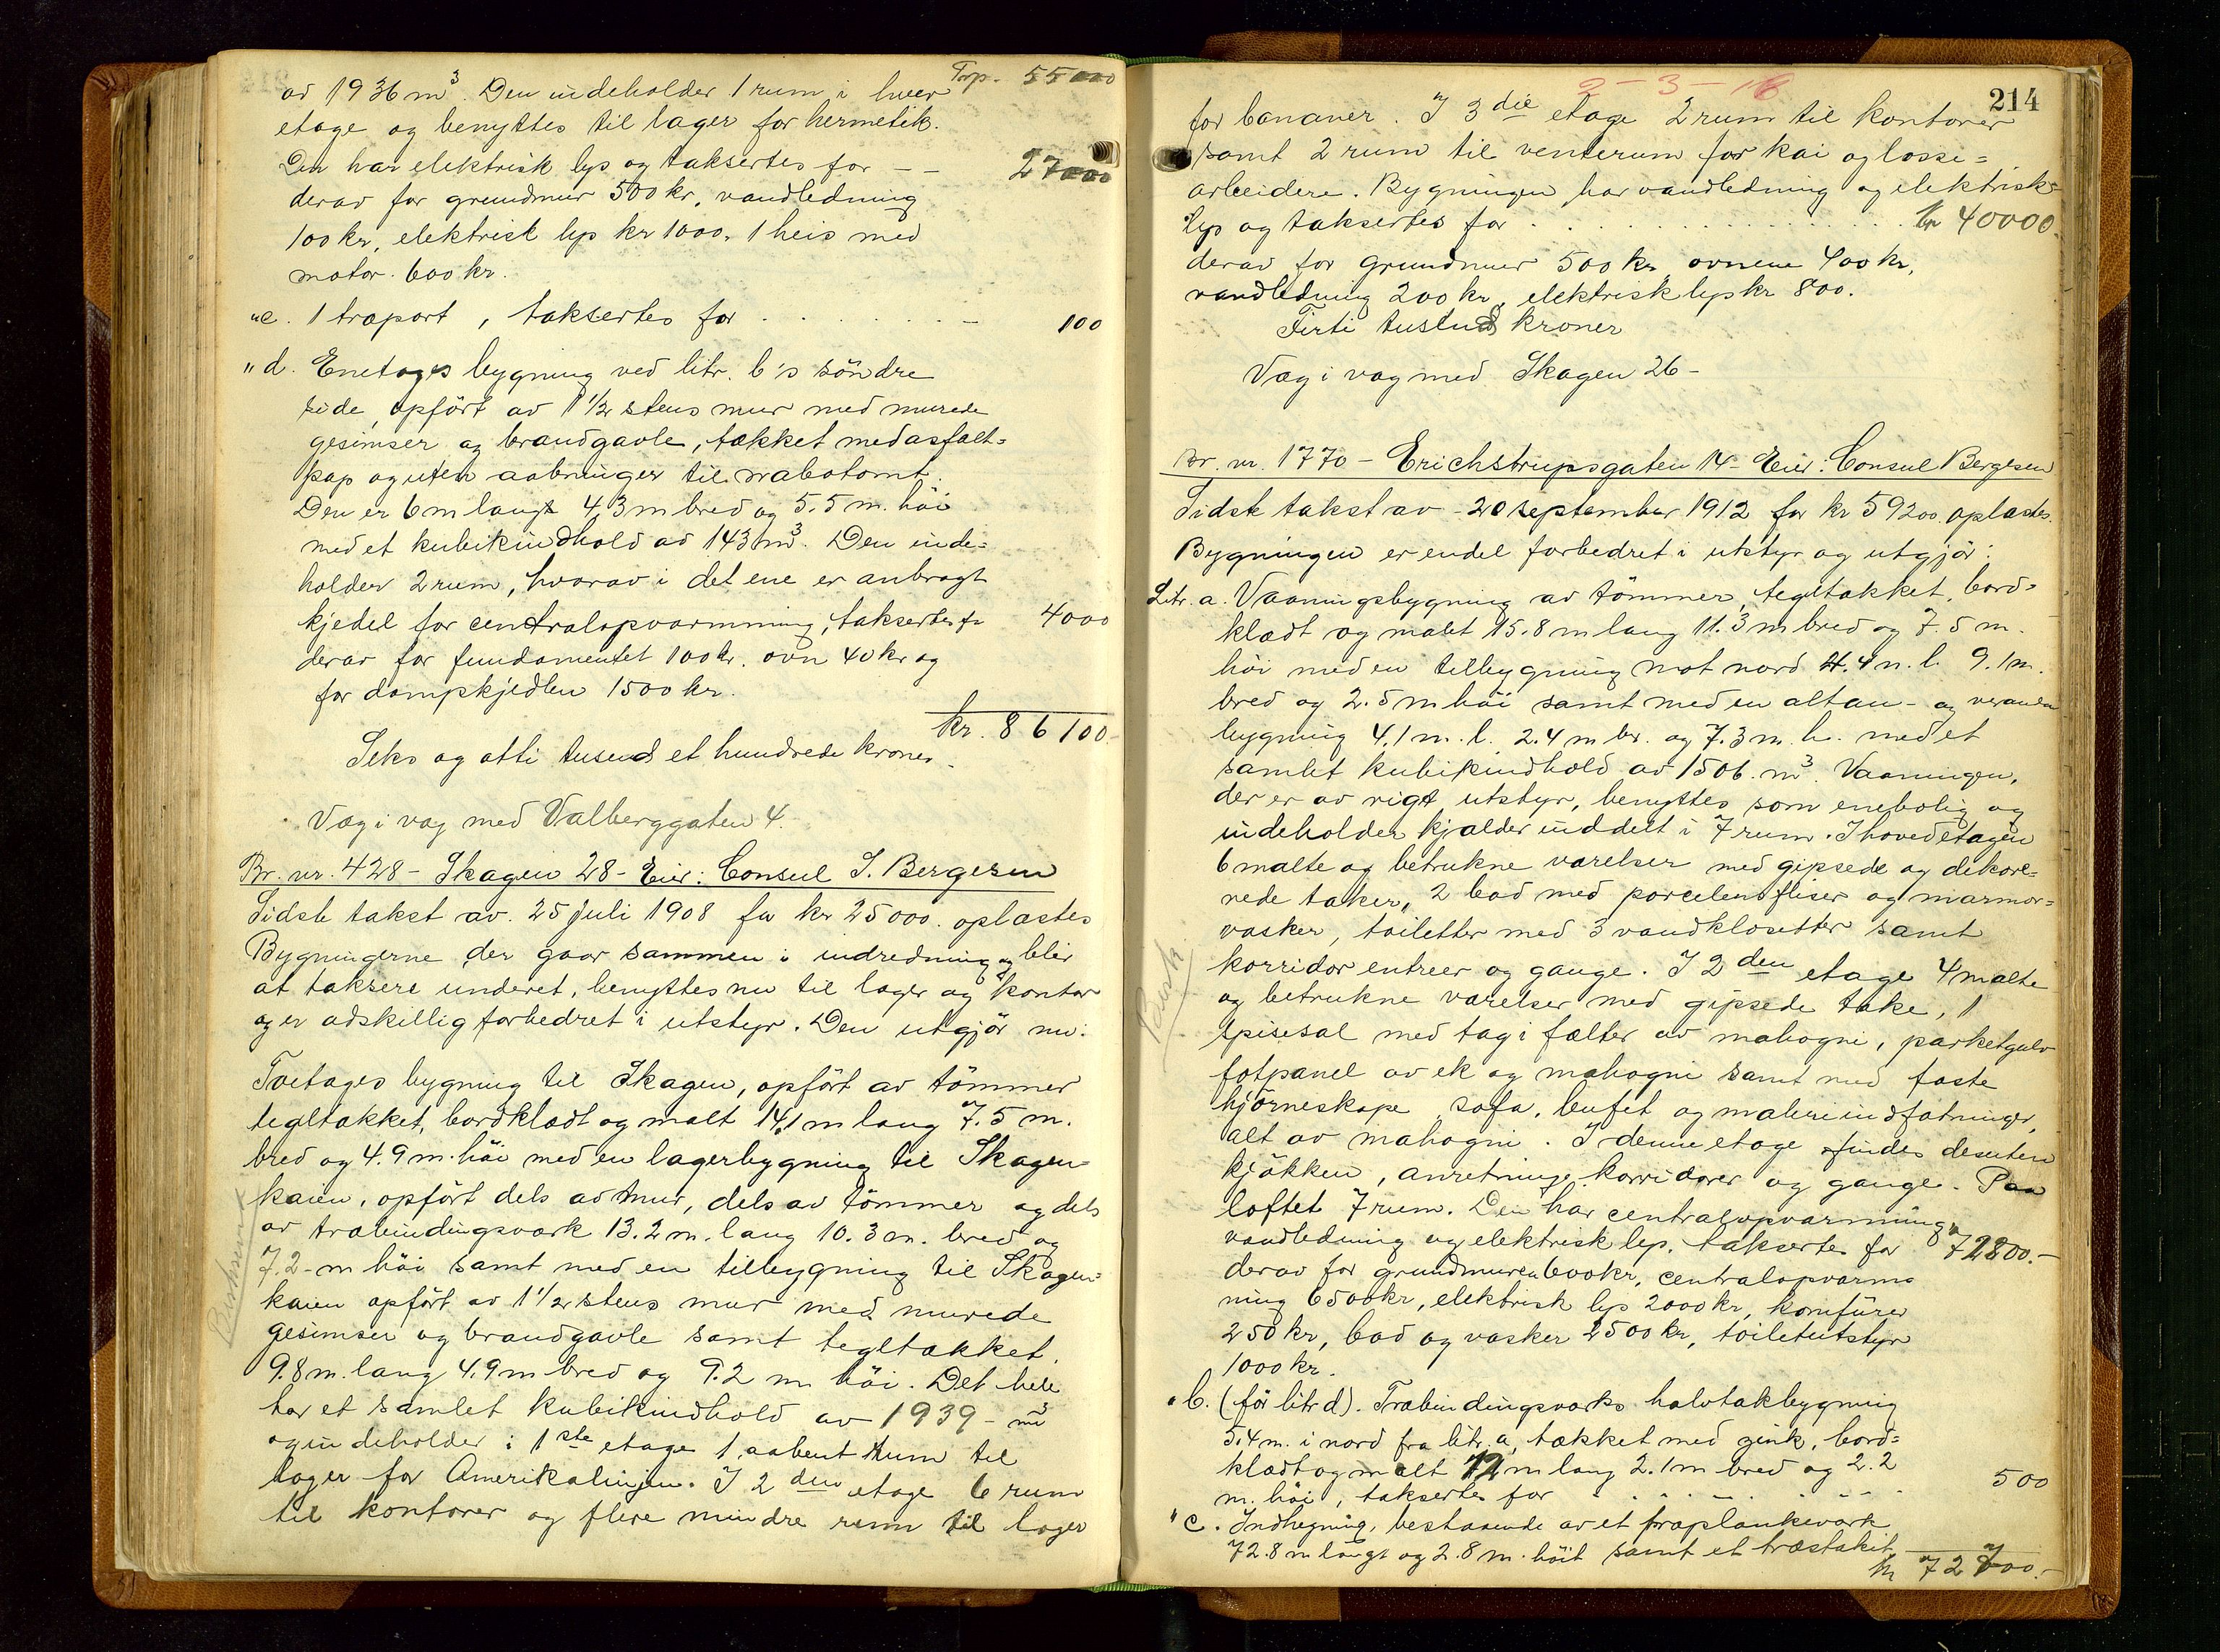 Trp. 55000
av 1936 m³. Den indeholder 1 rum i hver
etage og benyttes til lager for hermetik.
Den har elektrisk lys og taksertes for - - 27000
derav for grundmur 500 kr, vandledning
100 kr, elektrisk lys kr 1000, 1 heis med
motor 600 kr.
"c. 1 traport, taksertes for . . . . . . . - 100
"d. Enetages bygning ved litr. b's söndre
side, opfört av 1 1/2 stens mur med murede
gesimser og brandgavle, tækket med asfalt=
pap og uten aabninger til nabotomt.
Den er 6 m langt 4,3 m bred og 5.5 m. höi
med et kubikindhold av 143 m³. Den inde=
holder 2 rum, hvorav i det ene er anbragt
kjedel for centralopvarmning, taksertes fr 4000
derav for fundamentet 100 kr. ovn 40 kr og
for dampkjedlen 1500 kr.
kr. 86100.
Seks og otti tusend et hundrede kroner.
Væg i væg med Valberggaten 4.
Br. nr. 428 - Skagen 28 - Eier: Consul S. Bergesen
Sidste takst av 25 juli 1908 for kr 25000. oplæstes
Bygningerne der gaar sammen i indredning og blir
at taksere underet, benyttes nu til lager og kontor
og er adskillig forbedret i utstyr. Den utgjör nu:
Toetages bygning til Skagen, opfört av tömmer
tegltækket, bordklædt og malt 14,1 m lang 7.5 m.
bred og 4.9 m. höi med en lagerbygning til Skagen=
kaien, opfört dels av mur, dels av tömmer og dels
av træbindingsværk 13.2 m. lang 10.3 m. bred og
7.2 m höi samt med en tilbygning til Skagen=
kaien opfört av 1 1/2 stens mur med murede
gesimser og brandgavle samt tegltækket.
9.8 m. lang 4.9 m bred og 9.2 m höi. Det hele
har et samlet kubikindhold av 1939 - m³
og indeholder i 1ste etage 1 aabent rum til
lager for Amerikalinjen. I 2den etage 6 rum
til kontorer og flere mindre rum til lager
2 - 3 - 16
214
for bananer. I 3die etage 2 rum til kontorer
samt 2 rum til venterum for kai og losse=
arbeidere. Bygningen har vandledning og elektrisk
lys og taksertes for . . . . . . . . . . . . . kr 40000.
derav for grundmur 500 kr, ovnene 400 kr,
vandledning 200 kr, elektrisk lys kr 800.
Firti tusind kroner
Væg i væg med Skagen 26 -
Br. nr. 1770 - Erichstrupsgaten 14 - Eier: Consul Bergesen
Sidste takst av 20 september 1912 for kr 59200. oplæstes.
Bygningen er endel forbedret i utstyr og utgjör:
Litr. a. Vaaningsbygning av tömmer, tegltækket, bord=
klædt og malet 15.8 m lang 11.3 m bred og 7.5 m.
höi med en tilbygning mot nord 4.4 m. l. 9.1 m.
bred og 2.5 m höi samt med en altan- og veranda
bygning 4.1 m. l. 2.4 m br. og 7.3 m. h. med et
samlet kubikindhold av 1506 m³. Vaaningen,
der er av rigt utstyr, benyttes som enebolig og
indeholder kjælder inddelt i 7 rum. I hovedetagen
6 malte og betrukne værelser med gipsede og dekore=
rede taker, 2 bad med porcelensfliser og marmor=
vasker, toiletter med 3 vandklosetter samt
korridor entreer og gange. I 2den etage 4 malte
og betrukne værelser med gipsede take, 1
spisesal med tag i fælter av mahogni, parketgulv
fotpanel av ek og mahogni samt med faste
hjörneskape, sofa, bufet og maleriindfatninger,
alt av mahogni. I denne etage findes desuten
kjökken, anretnings korridorer og gange. Paa
loftet 7 rum. Den har centralopvarmning,
vandledning og elektrisk lys. taksertes for kr 72800.-
derav for grundmuren 600 kr, centralopvarm=
ning 6500 kr, elektrisk lys 2000 kr, komfürer
250 kr, bad og vasker 2500 kr, toiletutstyr
1000 kr.
"b. (för litr d). Træbindingsværks halvtakbygning
5.4 m. i nord fra litr. a, tækket med zink, bord=
klædt og malt 12 m lang 2.1 m bred og 2.2
m. höi, taksertes for . . . . . . . 500
"c. Indhegning, bestaaende av et træplankeværk
72.8 m langt og 2.8 m. höit samt et træstakit
kr